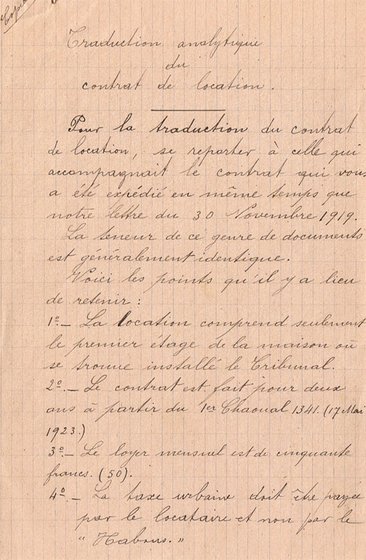 Copie
Traduction analytique
du
contrat de location.
Pour la traduction du contrat
de location, se reporter à celle qui
accompagnait le contrat qui vous
a été expédié en même temps que
notre lettre du 30 Novembre 1919.
La teneur de ce genre de documents
est généralement identique.
Voici les points qu'il y a lieu
de retenir :
1º_ La location comprend seulement
le premier étage de la maison où
se trouve installé le Tribunal.
2º_ Le contrat est fait pour deux
ans à partir du 1er Chaoual 1341. (17 Mai
1923.)
3º_ Le loyer mensuel est de cinquante
francs. (50).
4º_ La taxe urbaine doit être payée
par le locataire et non par le
"Habous."